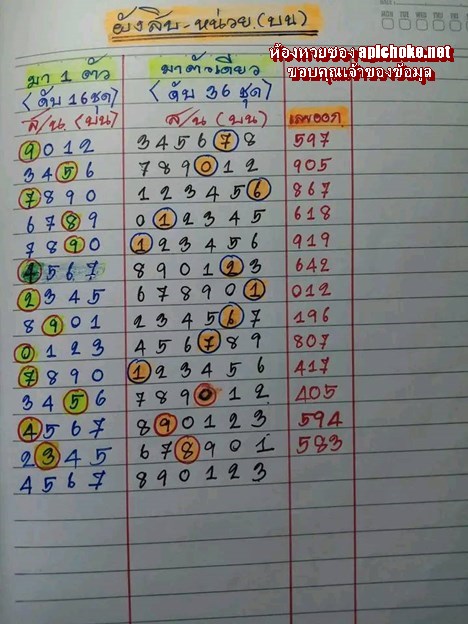 MON TUE WED THU FRI
ยังสิบ-หน่วย.(บน)
ห้องหวยซอง apichoke.net
ขอบคุณเจ้าของข้อมูล
มา 1 ตัว มาตัวเดียว
(ดับ 16 ชุด) (ดับ 36 ชุด)
ส/น (บน) ส/น (บน) เลขออก
9012 345678 597
3456 789012 905
7890 123456 867
6789 012345 618
7890 123456 919
4567 890123 642
2345 678901 012
8901 234567 196
0123 456789 807
7890 123456 417
3456 789012 405
4567 890123 594
2345 678901 583
4567 890123